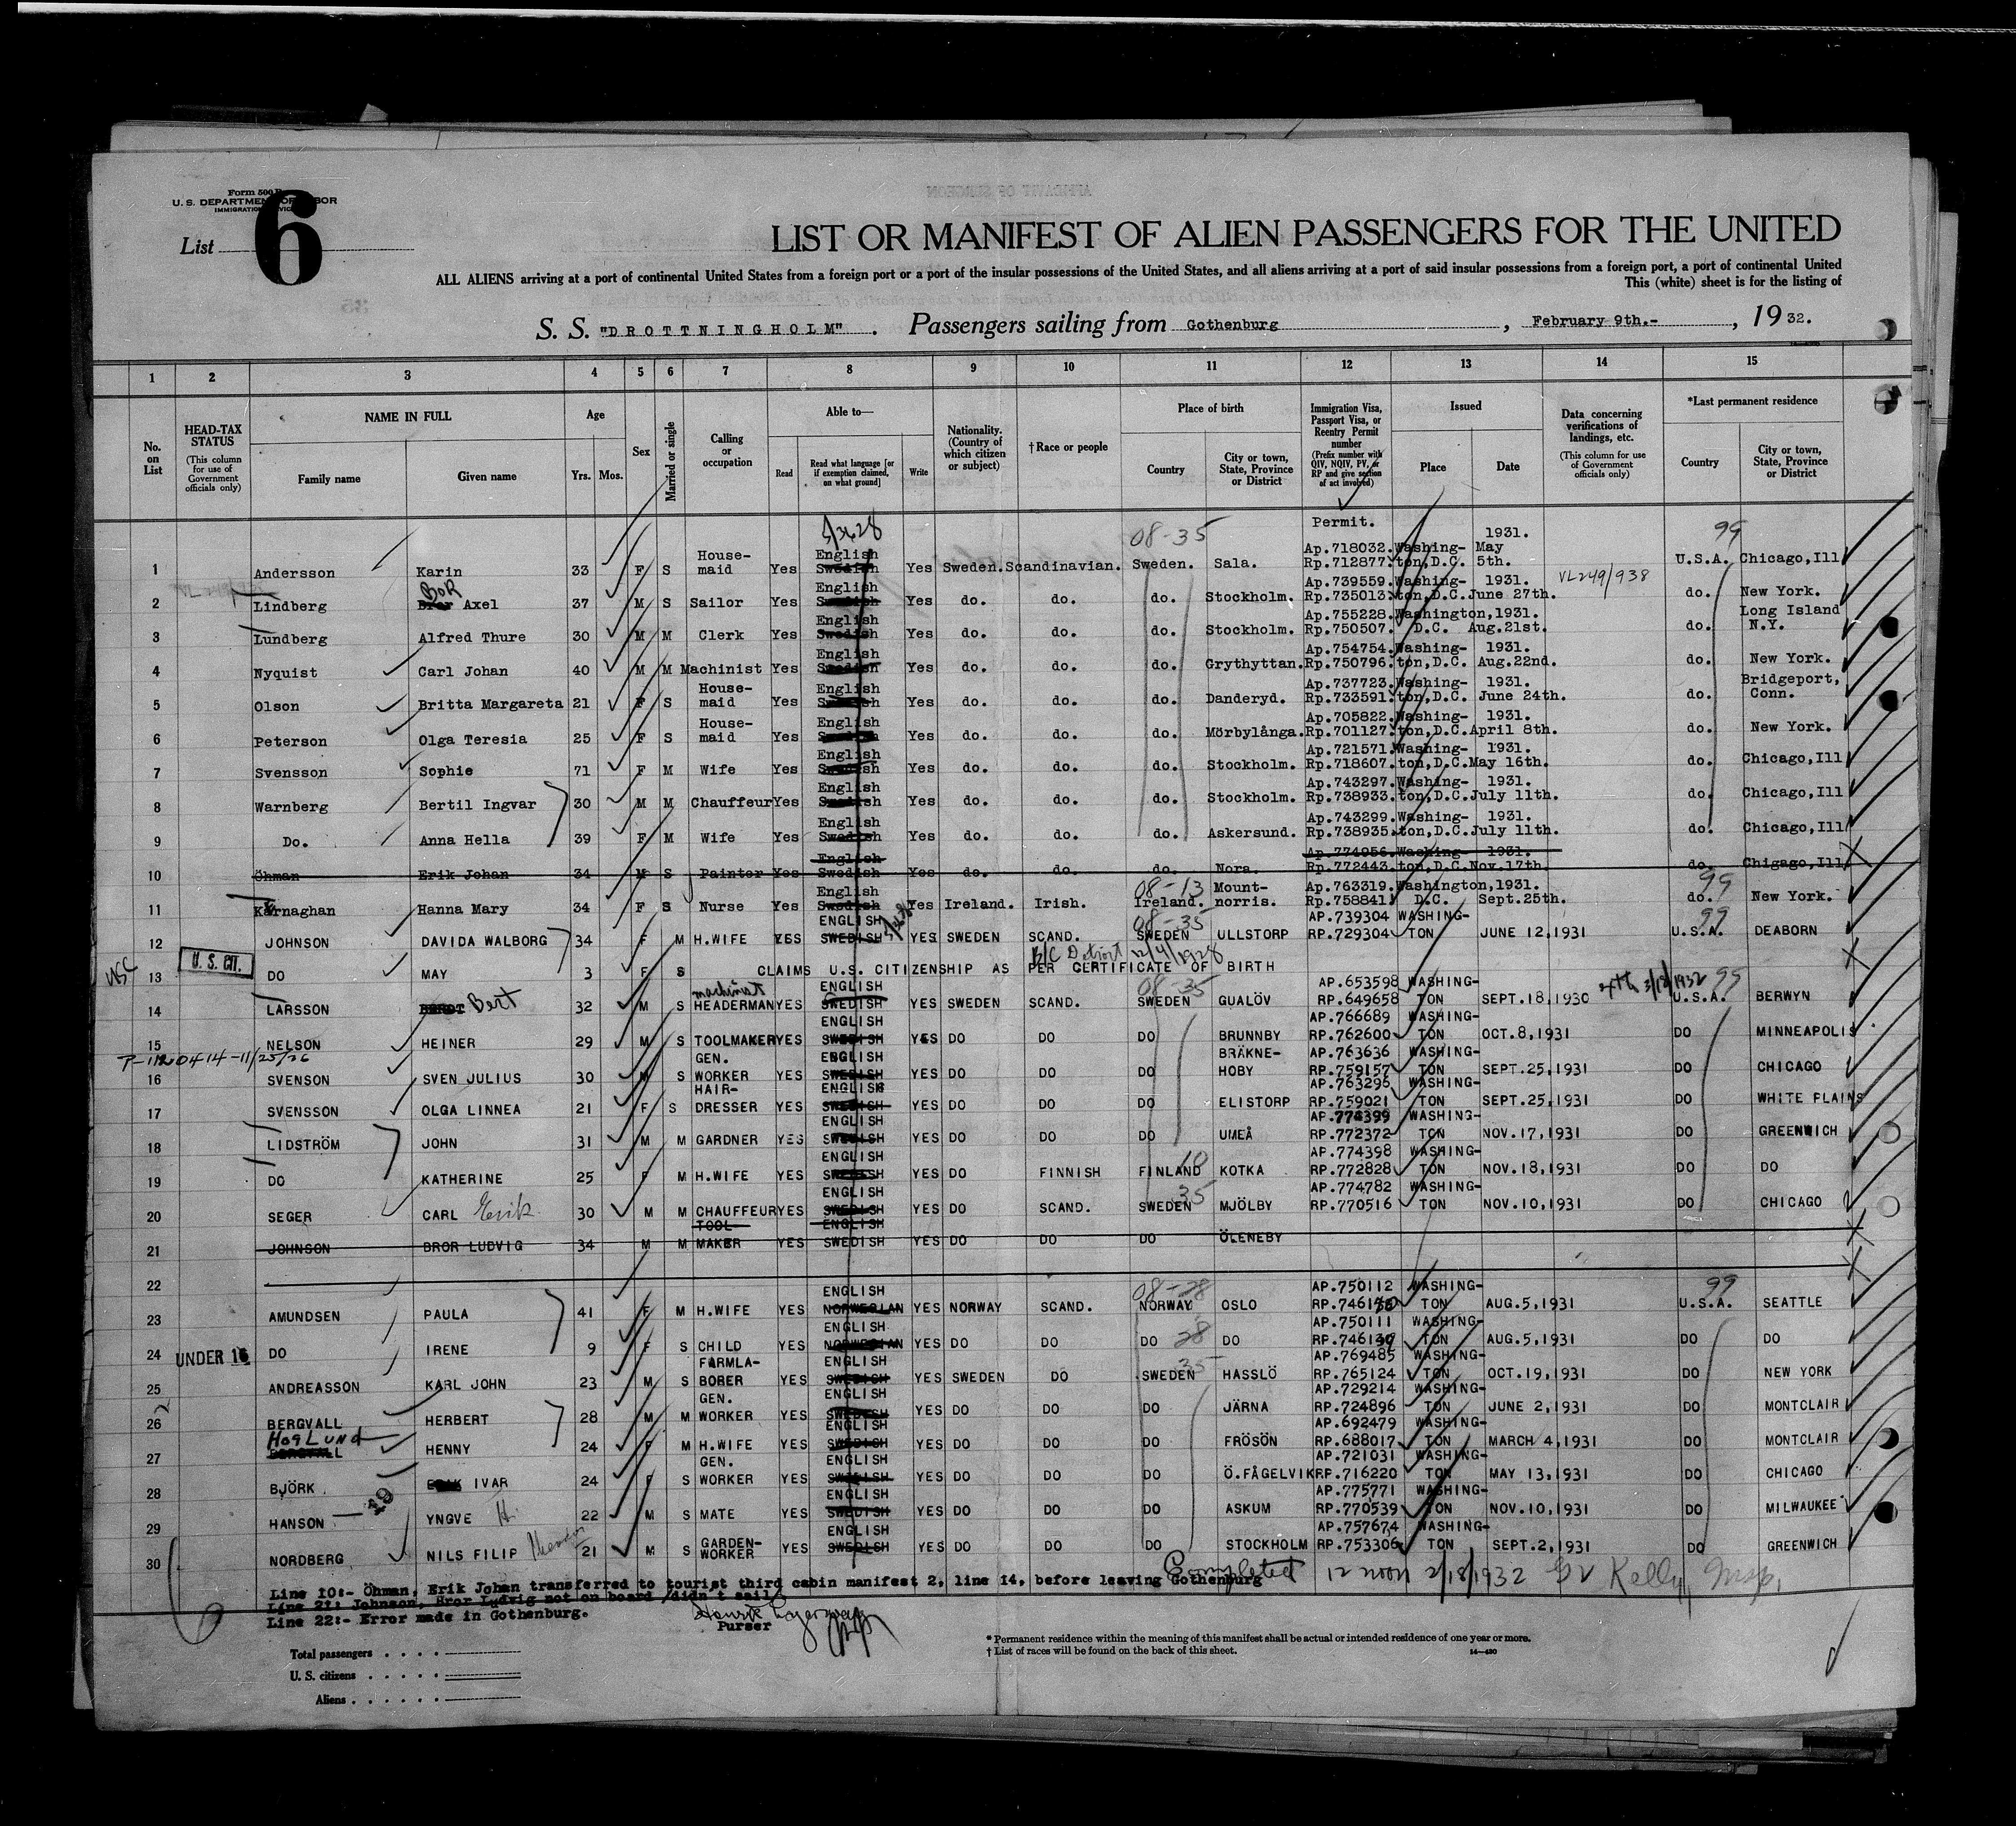 Form 500 B
U. S. DEPARTMENT OF LABOR
IMMIGRATION SERVICE
List 6
LIST OR MANIFEST OF ALIEN PASSENGERS FOR THE UNITED
ALL ALIENS arriving at a port of continental United States from a foreign port or a port of the insular possessions of the United States, and all aliens arriving at a port of said insular possessions from a foreign port, a port of continental United
This (white) sheet is for the listing of
S. S. "DROTTNINGHOLM". Passengers sailing from Gothenburg, February 9th.-, 19 32.
1 2 3 4 5 6 7 8 9 10 11 12 13 14 15
No. on List
HEAD-TAX STATUS (This column for use of Government officials only)
NAME IN FULL Family name Given name
Age Yrs. Mos.
Sex
Married or single
Calling or occupation
Able to— Read Read what language [or if exemption claimed, on what ground] Write
Nationality. (Country of which citizen or subject)
† Race or people
Place of birth Country City or town, State, Province or District
Immigration Visa, Passport Visa, or Reentry Permit number (Prefix number with QIV, NQIV, PV, or RP and give section of act involved)
Issued Place Date
Data concerning verifications of landings, etc. (This column for use of Government officials only)
*Last permanent residence Country City or town, State, Province or District
08-35 Permit. 99
1 Andersson Karin 33 F S House-maid Yes English Swedish Yes Sweden. Scandinavian. Sweden. Sala. Ap.718032. Rp.712877. Washing-ton,D.C. 1931. May 5th. U.S.A. Chicago,Ill
2 Lindberg Bror BoR Axel 37 M S Sailor Yes English Swedish Yes do. do. do. Stockholm. Ap.739559. Rp.735013. Washing-ton,D.C. 1931. June 27th. VL249/938 do. New York.
3 Lundberg Alfred Thure 30 M M Clerk Yes English Swedish Yes do. do. do. Stockholm. Ap.755228. Rp.750507. Washington, D.C. 1931. Aug.21st. do. Long Island N.Y.
4 Nyquist Carl Johan 40 M M Machinist Yes English Swedish Yes do. do. do. Grythyttan. Ap.754754. Rp.750796. Washing-ton,D.C. 1931. Aug.22nd. do. New York.
5 Olson Britta Margareta 21 F S House-maid Yes English Swedish Yes do. do. do. Danderyd. Ap.737723. Rp.733591. Washing-ton,D.C. 1931. June 24th. do. Bridgeport, Conn.
6 Peterson Olga Teresia 25 F S House-maid Yes English Swedish Yes do. do. do. Mörbylånga. Ap.705822. Rp.701127. Washing-ton,D.C. 1931. April 8th. do. New York.
7 Svensson Sophie 71 F M Wife Yes English Swedish Yes do. do. do. Stockholm. Ap.721571. Rp.718607. Washing-ton,D.C. 1931. May 16th. do. Chicago,Ill
8 Warnberg Bertil Ingvar 30 M M Chauffeur Yes English Swedish Yes do. do. do. Stockholm. Ap.743297. Rp.738933. Washing-ton,D.C. 1931. July 11th. do. Chicago,Ill
9 Do. Anna Hella 39 F M Wife Yes English Swedish Yes do. do. do. Askersund. Ap.743299. Rp.738935. Washing-ton,D.C. 1931. July 11th. do. Chicago,Ill
10 Öhman Erik Johan 34 M S Painter Yes English Swedish Yes do. do. do. Nora. Ap.774956. Rp.772443. Washing-ton,D.C. 1931. Nov.17th. do. Chigago,Ill
11 Karnaghan Hanna Mary 34 F S Nurse Yes English Swedish Yes Ireland. Irish. 08-13 Ireland. Mount-norris. Ap.763319. Rp.758841. Washington, D.C. 1931. Sept.25th. 99 do. New York.
12 JOHNSON DAVIDA WALBORG 34 F M H.WIFE YES ENGLISH SWEDISH YES SWEDEN SCAND. 08-35 SWEDEN ULLSTORP AP.739304 RP.729304 WASHING-TON JUNE 12,1931 99 U.S.A. DEABORN
USC 13 U. S. CIT. DO MAY 3 F S CLAIMS U.S. CITIZENSHIP AS PER CERTIFICATE OF BIRTH B/C Detroit 12/4/1928
14 LARSSON Bert 32 M S machinist HEADERMAN YES ENGLISH SWEDISH YES SWEDEN SCAND. 08-35 SWEDEN GUALÖV AP.653598 RP.649658 WASHING-TON SEPT.18,1930 3/18/1932 99 U.S.A. BERWYN
15 NELSON HEINER 29 M S TOOLMAKER YES ENGLISH SWEDISH YES DO DO DO BRUNNBY AP.766689 RP.762600 WASHING-TON OCT.8,1931 DO MINNEAPOLIS
16 SVENSON SVEN JULIUS 30 M S GEN. WORKER YES ENGLISH SWEDISH YES DO DO DO BRÄKNE-HOBY AP.763636 RP.759157 WASHING-TON SEPT.25,1931 DO CHICAGO
17 SVENSSON OLGA LINNEA 21 F S HAIR-DRESSER YES ENGLISH SWEDISH YES DO DO DO ELISTORP AP.763296 RP.759021 WASHING-TON SEPT.25,1931 DO WHITE PLAINS
18 LIDSTRÖM JOHN 31 M M GARDNER YES ENGLISH SWEDISH YES DO DO DO UMEÅ AP.774399 RP.772372 WASHING-TON NOV.17,1931 DO GREENWICH
19 DO KATHERINE 25 F M H.WIFE YES ENGLISH SWEDISH YES DO FINNISH FINLAND 10 KOTKA AP.774398 RP.772828 WASHING-TON NOV.18,1931 DO DO
20 SEGER CARL Erik 30 M M CHAUFFEUR YES ENGLISH SWEDISH YES DO SCAND. 35 SWEDEN MJÖLBY AP.774782 RP.770516 WASHING-TON NOV.10,1931 DO CHICAGO
21 JOHNSON BROR LUDVIG 34 M M TOOL MAKER YES ENGLISH SWEDISH YES DO DO DO ÖLENEBY
22
23 AMUNDSEN PAULA 41 F M H.WIFE YES ENGLISH NORWEGIAN YES NORWAY SCAND. 08-28 NORWAY OSLO AP.750112 WASHING-TON AUG.5,1931 99 U.S.A. SEATTLE
24 UNDER 16 DO IRENE 9 F S CHILD YES ENGLISH NORWEGIAN YES DO DO DO 28 DO AP.750111 WASHING-TON AUG.5,1931 DO DO
25 ANDREASSON KARL JOHN 23 M S FARMLA-BORER YES ENGLISH SWEDISH YES SWEDEN DO 35 SWEDEN HASSLÖ AP.769485 RP.765124 WASHING-TON OCT.19,1931 DO NEW YORK
26 BERGVALL HERBERT 28 M M GEN. WORKER YES ENGLISH SWEDISH YES DO DO DO JÄRNA AP.729214 RP.724896 WASHING-TON JUNE 2,1931 DO MONTCLAIR
27 HogLund BERGVALL HENNY 24 F M H.WIFE YES ENGLISH SWEDISH YES DO DO DO FRÖSÖN AP.692479 RP.688017 WASHING-TON MARCH 4,1931 DO MONTCLAIR
28 BJÖRK ERIK IVAR 24 F S GEN. WORKER YES ENGLISH SWEDISH YES DO DO DO Ö.FÅGELVIK AP.721031 RP.716220 WASHING-TON MAY 13,1931 DO CHICAGO
29 HANSON 19 YNGVE H. 22 M S MATE YES ENGLISH SWEDISH YES DO DO DO ASKUM AP.775771 RP.770539 WASHING-TON NOV.10,1931 DO MILWAUKEE
30 NORDBERG NILS FILIP 21 M S GARDEN-WORKER YES ENGLISH SWEDISH YES DO DO DO STOCKHOLM AP.757674 RP.753306 WASHING-TON SEPT.2,1931 DO GREENWICH
Completed 12 noon 2/18/1932 Kelly, Insp.
Line 10:- Öhman, Erik Johan transferred to tourist third cabin manifest 2, line 14, before leaving Gothenburg
Line 21: Johnson, Bror Ludvig not on board /didn't sail/
Line 22:- Error made in Gothenburg.
Purser
Total passengers
U. S. citizens
Aliens
* Permanent residence within the meaning of this manifest shall be actual or intended residence of one year or more.
† List of races will be found on the back of this sheet.
14—430